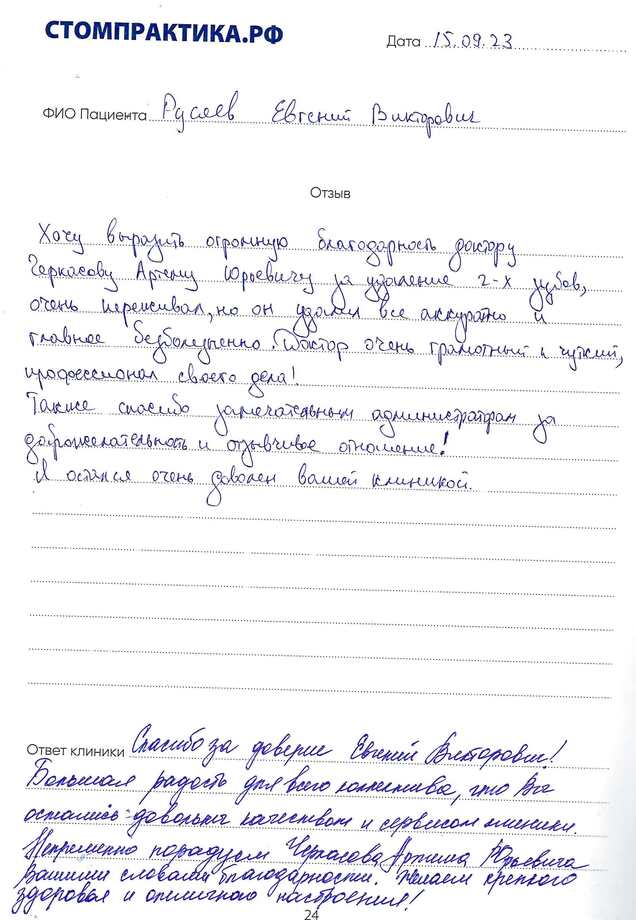 СТОМПРАКТИКА.РФ
Дата 15.09.23
ФИО Пациента Русяев Евгений Викторович
Отзыв
Хочу выразить огромную благодарность доктору
Черкасову Артему Юрьевичу за удаление 2-х зубов,
очень переживал, но он удалил все аккуратно и
главное безболезненно. Доктор очень грамотный и чуткий,
профессионал своего дела!
Также спасибо замечательным администраторам за
доброжелательность и отзывчивое отношение!
Я остался очень доволен вашей клиникой.
Ответ клиники Спасибо за доверие Евгений Викторович!
Большая радость для всего коллектива, что Вы
остались довольны качеством и сервисом клиники.
Непременно порадуем Черкасова Артёма Юрьевича
Вашими словами благодарности. Желаем крепкого
здоровья и отличного настроения!
24